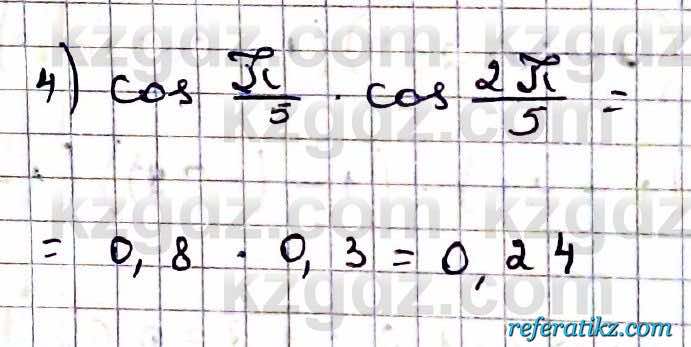 kzgdz.com
4) cos π/5 · cos 2π/5 =
kzgdz.com
kzgdz.com
= 0,8 · 0,3 = 0,24
kzgdz.com
referatikz.com